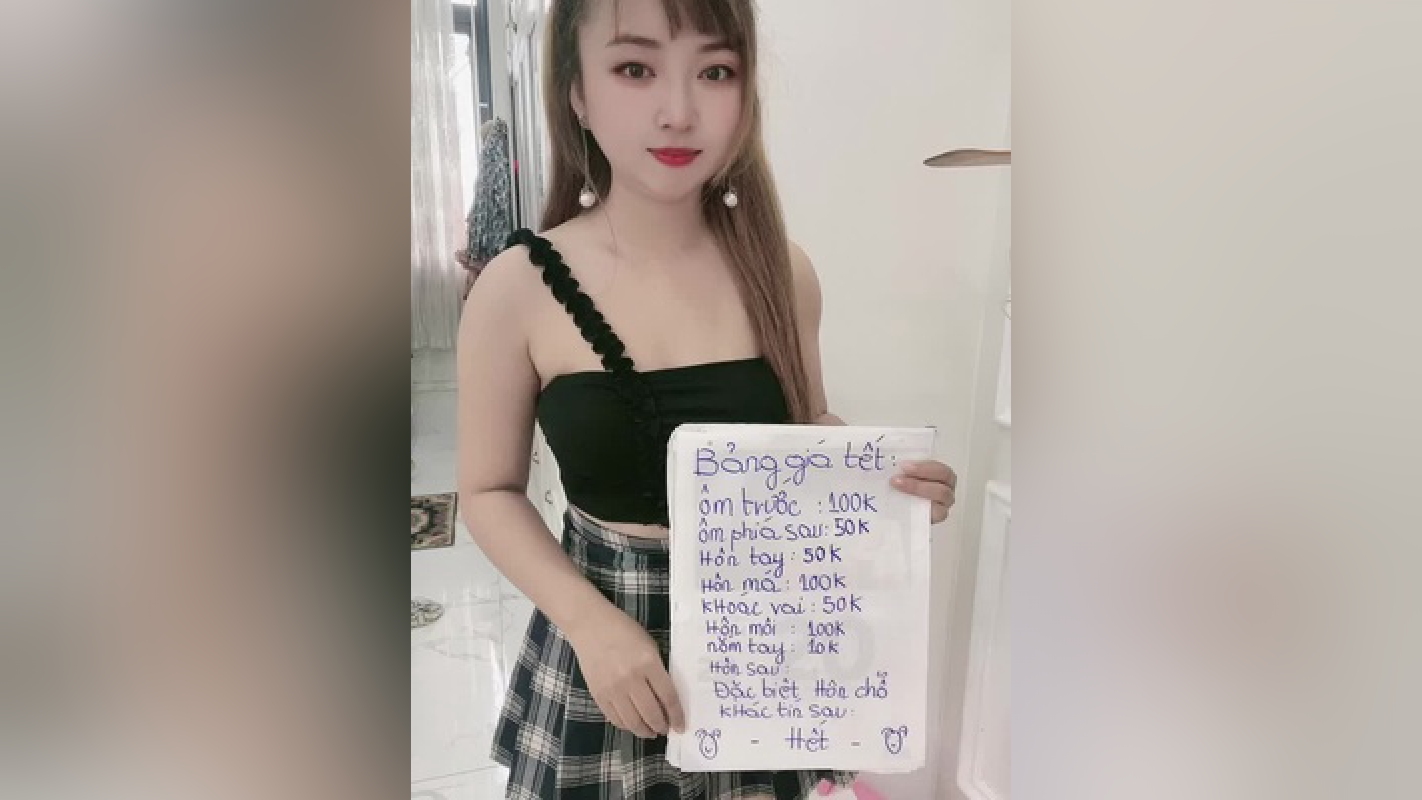 Bảng giá tết:
ôm trước : 100K
ôm phiá sau: 50K
Hôn tay : 50K
Hôn má : 100K
KHoác vai : 50K
Hôn môi : 100K
nắm tay : 10K
Hôn sau :
Đặc biệt Hôn chỗ
KHác tín sau :
- Hết -